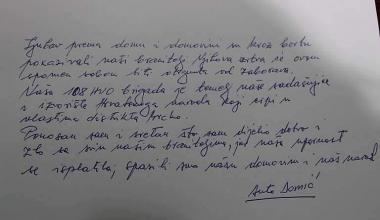 Ljubav prema domu i domovini su kroz borbu
pokazivali naši branitelji. Njihova žrtva će ovom
spomen sobom biti otrgnuta od zaborava.
Naša 108 HVO brigada je temelj naše sadašnjice
i izvorište Hrvatskoga naroda koji živi u
vlastima distrikta Brcko.
Ponosan sam i sretan što sam dijelio dobro i
zlo sa svim našim braniteljima, jer naša upornost
se isplatila, spasili smo našu domovinu i naš narod.
Anto Domić